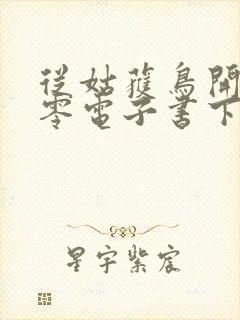 從姑獲鳥開
零電子書下
星宇紫宸